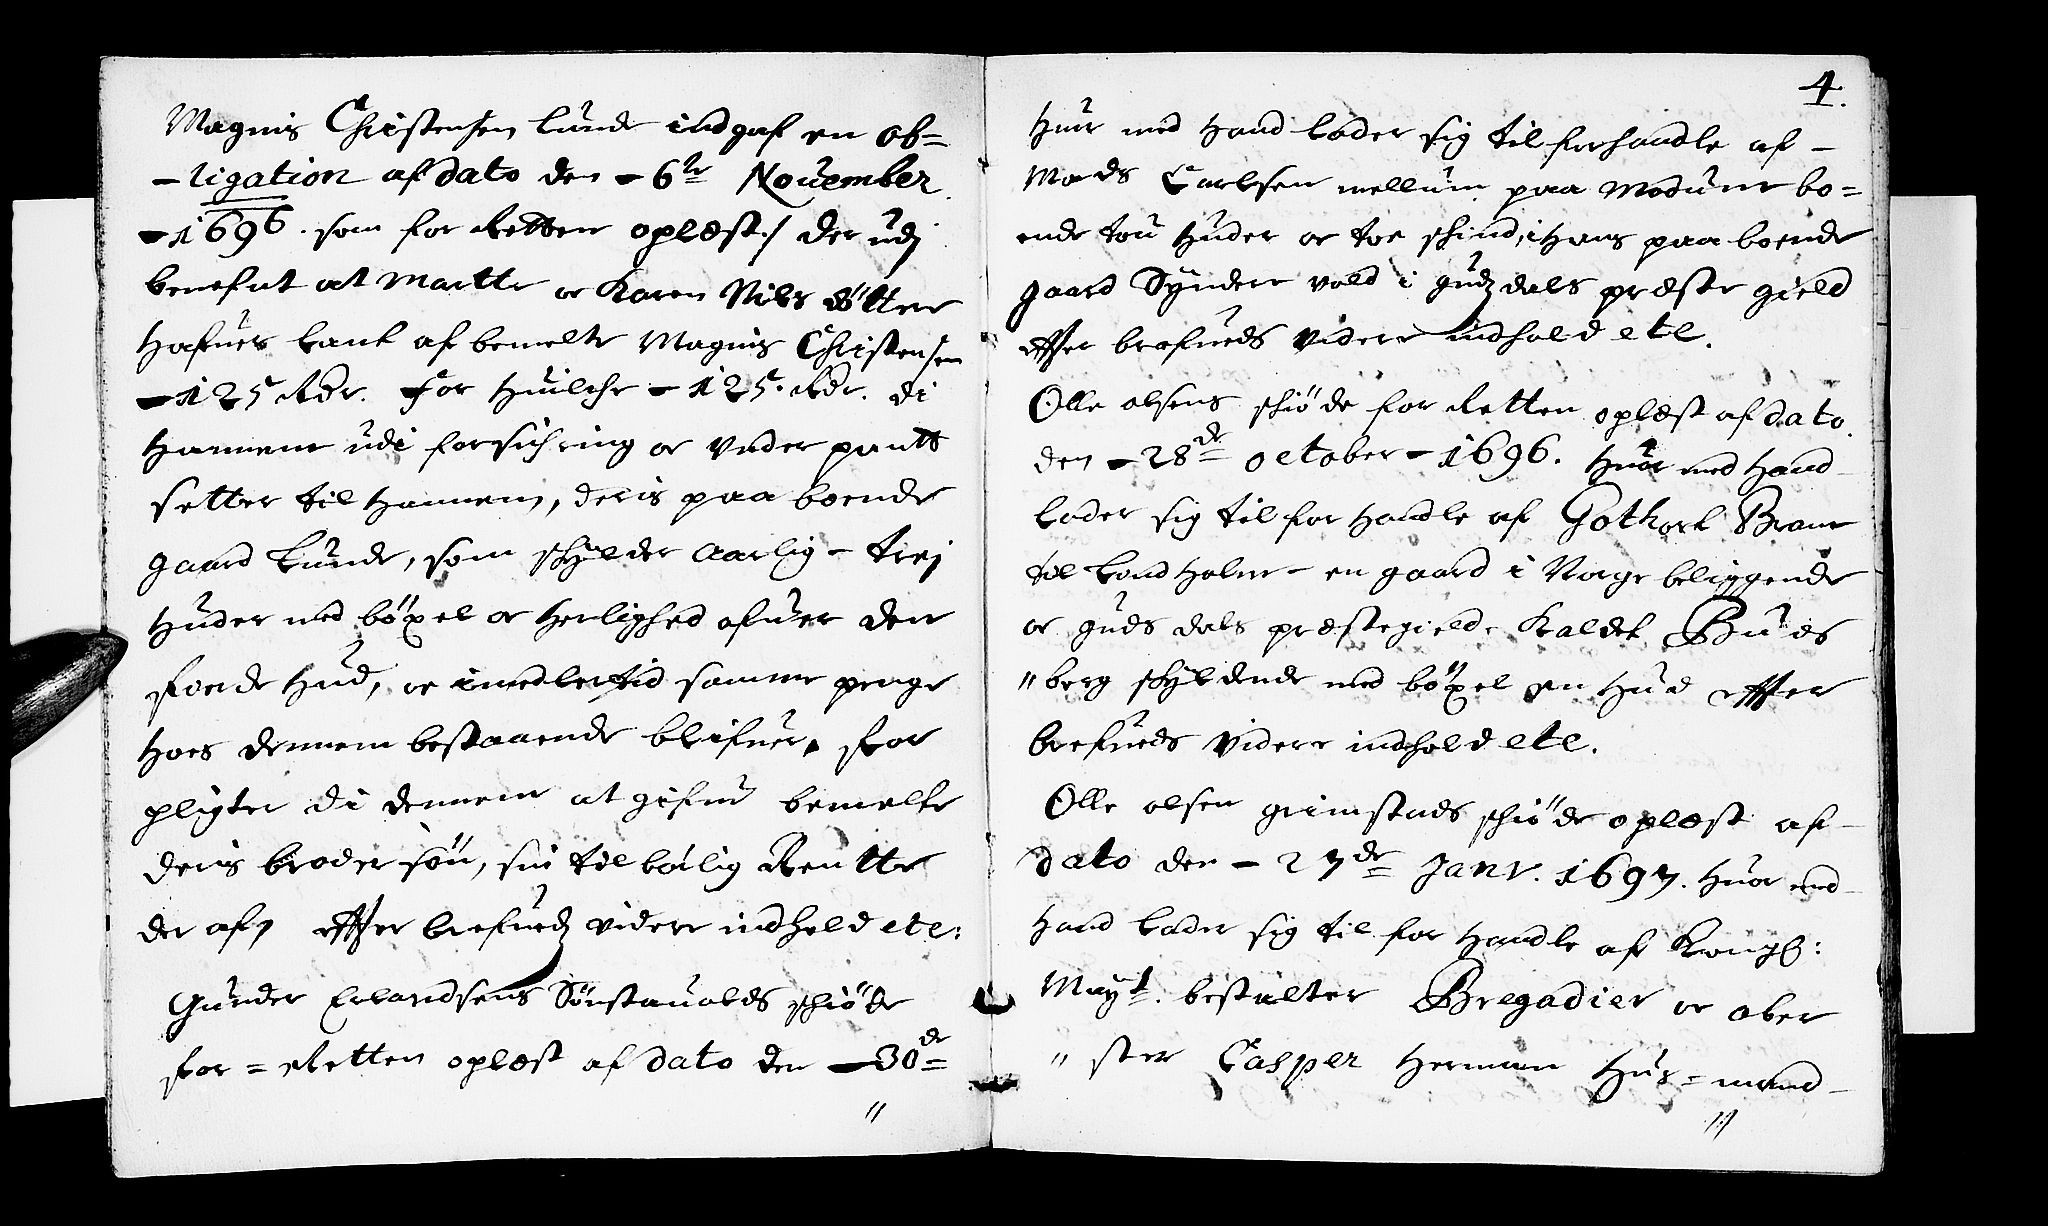 Magnus Christensen Lunde indgaf en ob=
-ligation af dato den - 6te November
- 1696. som for Retten oplæst / der udj
benefnt at Martte oc Karen Nils døtter
Hafuer lant af bemelte Magnus Christensen
- 125 Rdr. For Huilche - 125. Rdr. di
Hannem udi forsichring oc Under pantt
setter til Hannem, deris paa boende
gaard Lunde, som schylder aarlig - trej
Huder med böxel oc Herlighed ofuer den
fierde Hud, oc imedlertid samme penge
Hoes dennem bestaaende blifuer, for
pligter di dennem at gifue bemelte
deris broder sön, sin tilbörlig Rentte
der af, effter brefuedz videre indhold etc:
Gunder Erlandsens Sönstauolds schiöde
for = Retten oplæst af dato den - 30de
"
4.
Huor med Hand lader sig til forhandle af -
Mads Carlsen mellum paa Modum bo=
ende tou Huder oc toe schind i Hans paa boende
gaard Syndere vold i gudzdals præste gield
effter brefueds videre indhold etc.
Olle olsens schiöde for Retten oplæst af dato
den - 28de october - 1696. Huor med Hand
lader sig til for Handle af Gothart Brane
til Lond Holm - en gaard i Norge beliggende
oc guds dals præstegield. Kaldet Buds
" berg schyldende med böxel en Hud effter
brefueds videre indhold etc.
Olle olsen grimstads schiöde oplæst af -
dato den - 27de Janr. 1697. Huor med
Hand lader sig til for Handle af Kongl:
Mayt. bestalter Bregadier oc ober
" ster Casper Herman Hus = mand -
"